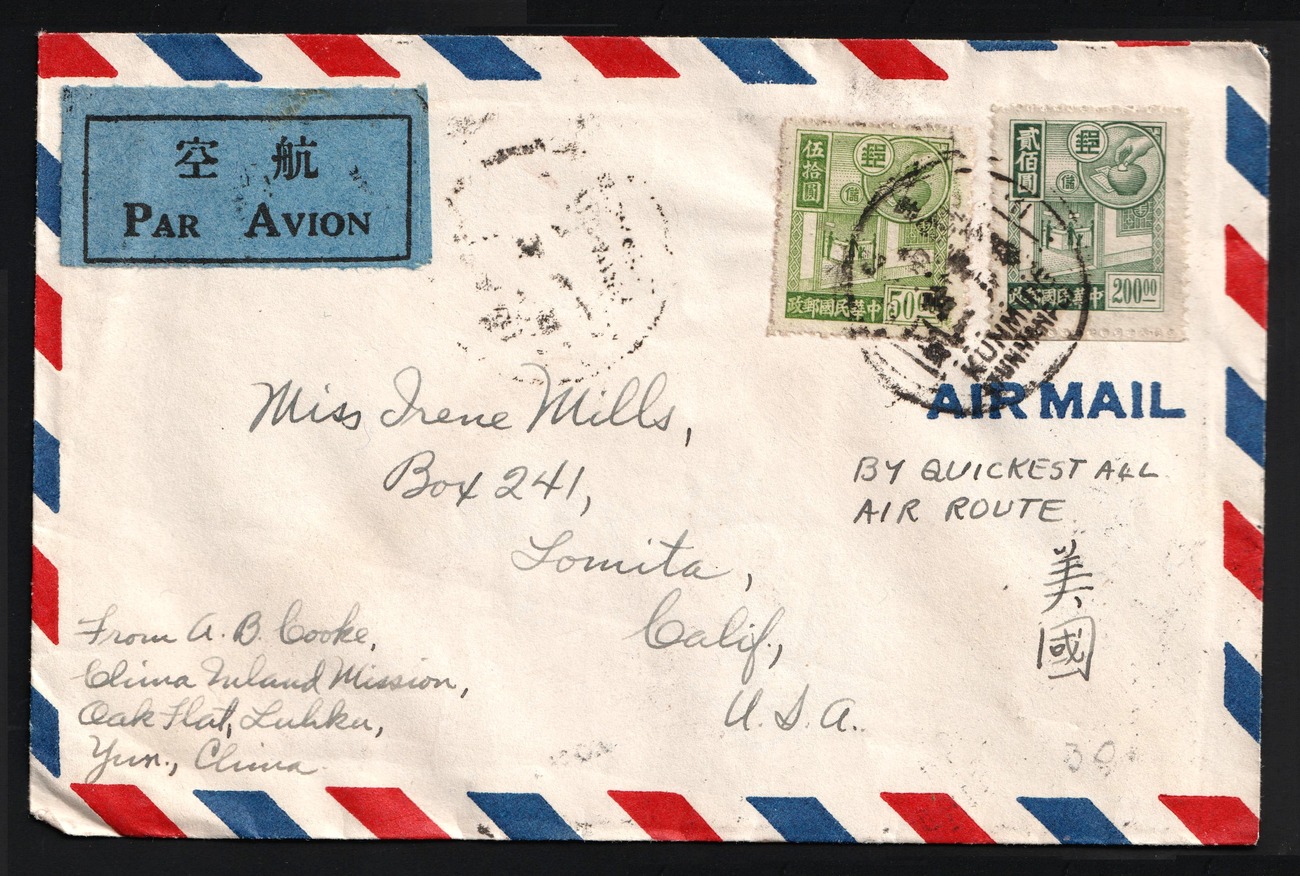 空 航
PAR AVION
伍拾圓
郵
儲
政郵國民華中
50
貳佰圓
郵
儲
政郵國民華中
200.00
KUNMING
AIR MAIL
Miss Irene Mills,
Box 241,
Lomita,
Calif.,
U.S.A.
BY QUICKEST ALL
AIR ROUTE
美
國
From A. B. Cooke,
China Inland Mission,
Oak Flat, Luhku,
Yun., China.